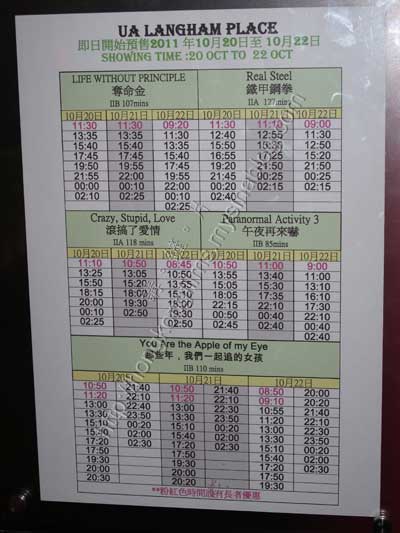 UA LANGHAM PLACE
即日開始預售2011 年10月20日至 10月22日
SHOWING TIME :20 OCT TO 22 OCT
LIFE WITHOUT PRINCIPLE Real Steel
奪命金 鐵甲鋼拳
IIB 107mins IIA 127mins
10月20日 10月21日 10月22日 10月20日 10月21日 10月22日
11:30 11:30 09:20 11:30 11:10 09:00
13:35 13:35 11:30 12:40 12:55
15:40 15:40 13:35 14:05 15:30
17:45 17:45 15:40 16:55 15:20
19:50 19:50 17:45 19:20 21:50
21:55 22:00 19:50 21:55
00:00 00:10 22:00 00:20 02:15 02:15
02:10 02:15 00:10 02:45
02:25
Crazy, Stupid, Love Paranormal Activity 3
滾搞了愛情 午夜再來嚇
IIA 118 mins IIB 85mins
10月20日 10月21日 10月22日 10月20日 10月21日 10月22日
11:10 10:50 08:45 10:50 11:00 9:00
13:25 13:05 10:50 13:55 13:40 11:00
15:50 15:20 12:55 15:55 15:10 13:40
18:15 18:05 15:10 18:05 17:35 16:10
20:00 19:30 18:05 22:15 22:10 17:30
00:10 02:50 19:30 00:45 22:40 22:10
02:25 00:50 02:40 00:40 22:40
02:50 02:40 00:40
You Are the Apple of my Eye
那些年，我們一起追的女孩
IIB 110 mins
10月20日 10月21日 10月22日
10:50 21:40 10:50 21:40 08:50 20:00
11:20 22:10 11:20 22:10 09:10 20:20
13:00 22:30 13:00 22:30 10:50 22:10
13:30 23:50 13:30 23:50 11:20 22:30
15:10 00:20 15:10 00:20 13:00 23:50
15:40 02:00 15:40 00:50 13:30 00:20
17:20 02:30 17:20 02:00 15:10 02:00
17:50 17:50 02:30 15:40 02:30
19:30 19:30 17:20
20:00 20:00 17:50
20:20 20:20 19:30
**粉紅色時間設有長者優惠